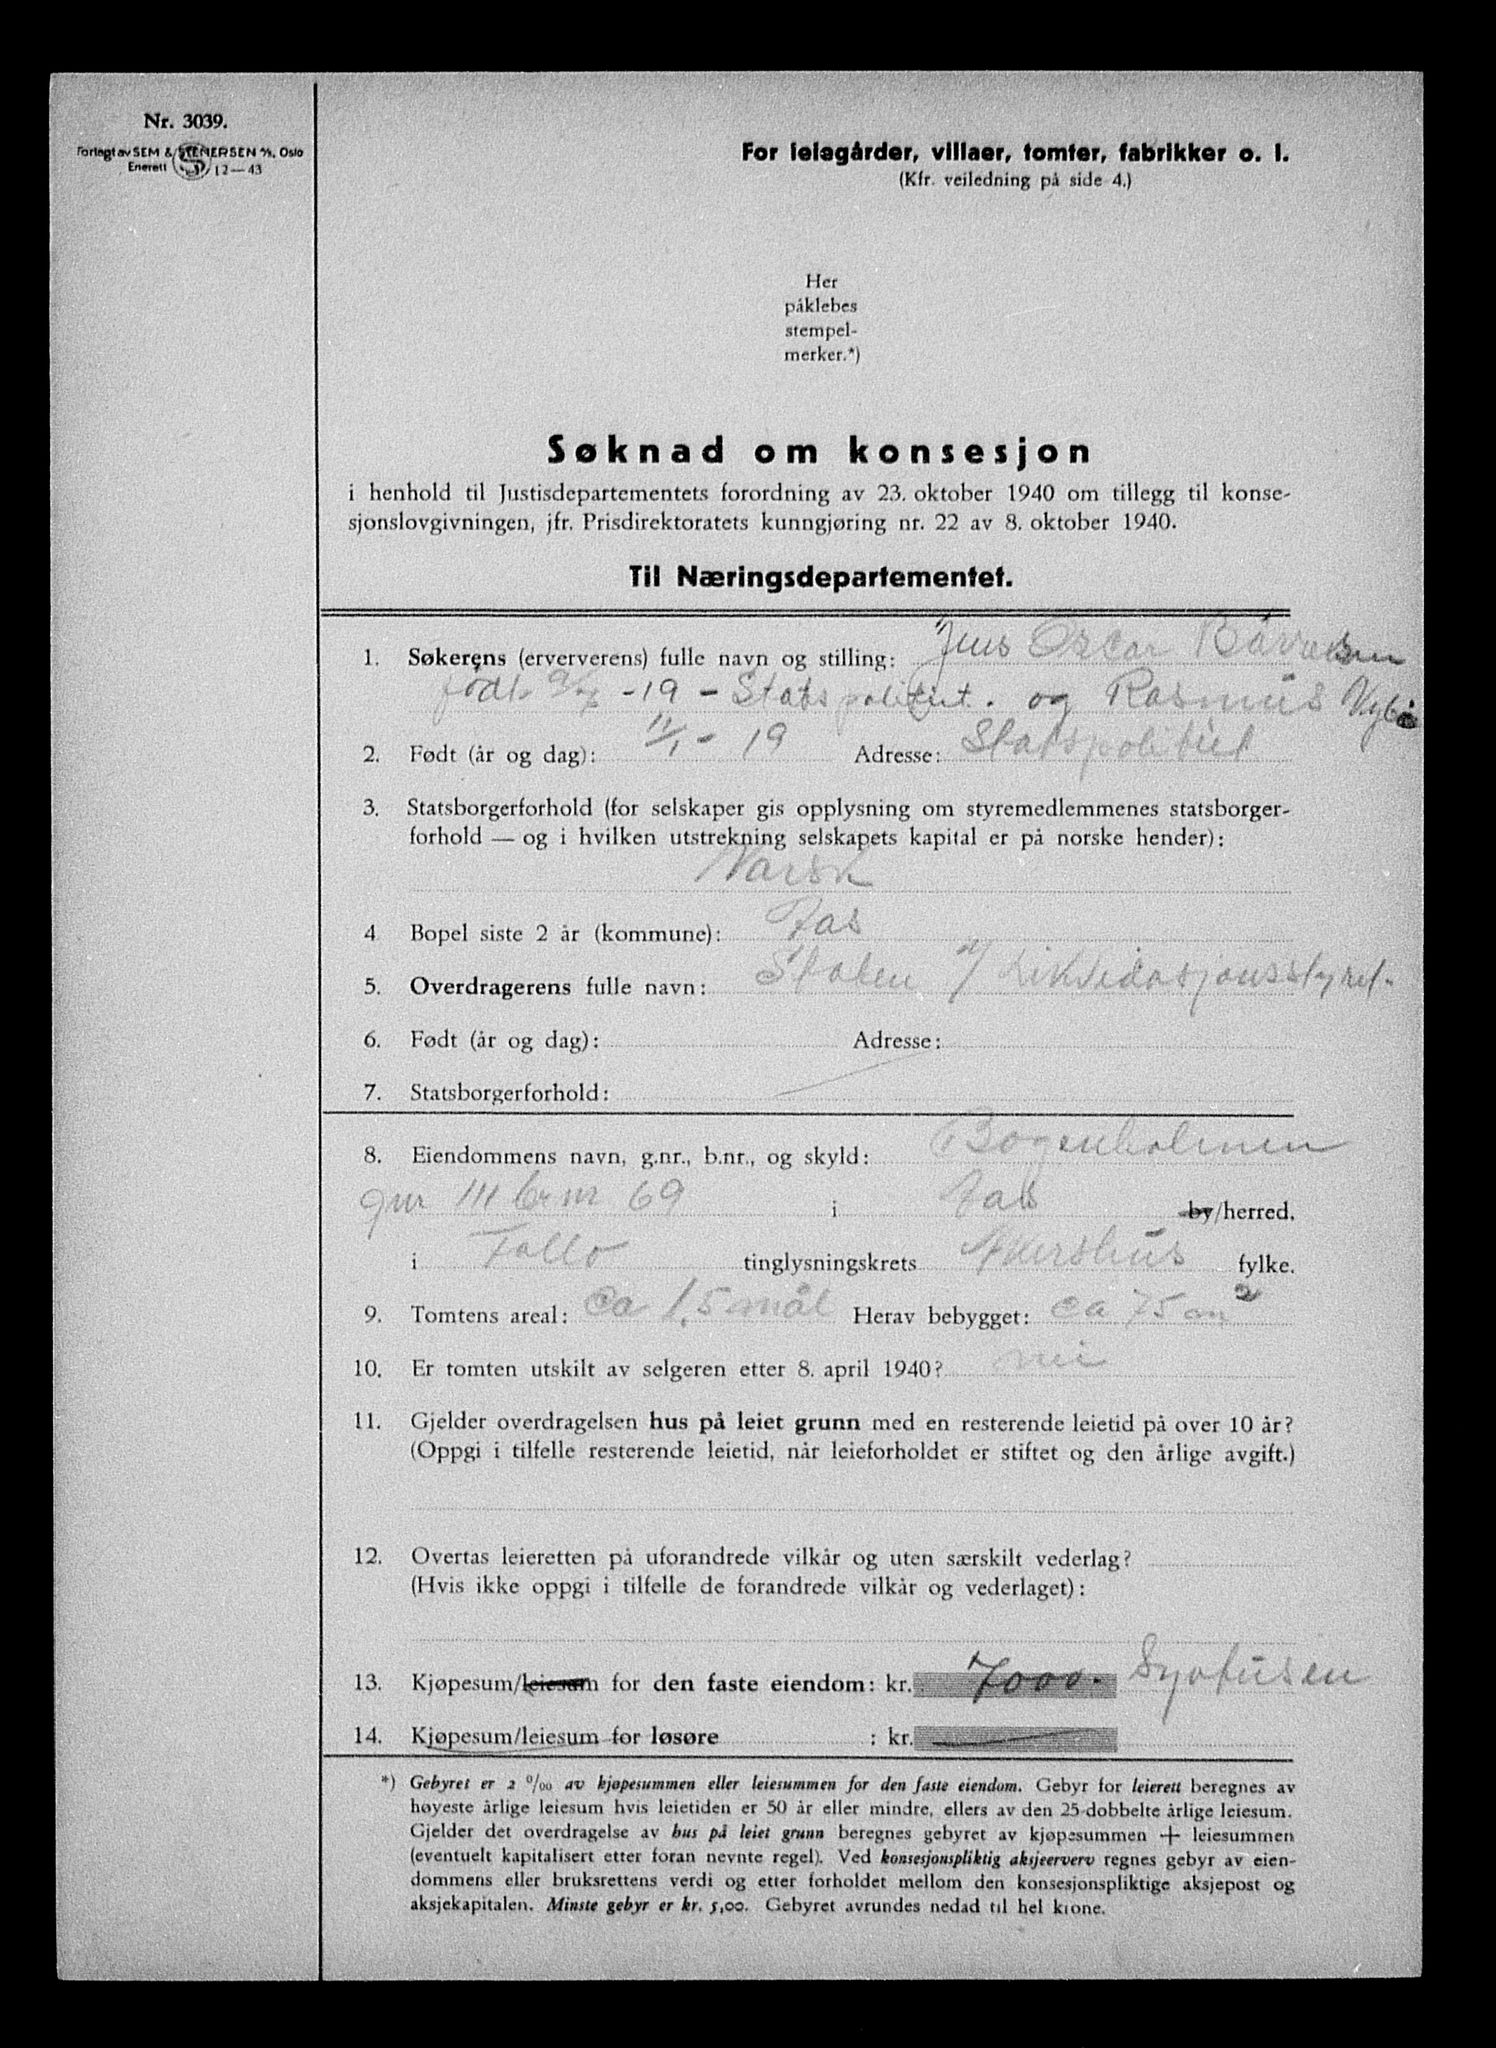 Nr. 3039.
Forlagt av SEM & STENERSEN A/S, Oslo
Enerett S 12—43
For leiegårder, villaer, tomter, fabrikker o. l.
(Kfr. veiledning på side 4.)
Her
påklebes
stempel-
merker.*)
Søknad om konsesjon
i henhold til Justisdepartementets forordning av 23. oktober 1940 om tillegg til konse-
sjonslovgivningen, jfr. Prisdirektoratets kunngjøring nr. 22 av 8. oktober 1940.
Til Næringsdepartementet.
1. Søkerens (erververens) fulle navn og stilling: Jens Oscar
født -19 - Statspolitiet. og Rasmus
2. Født (år og dag): 11/1 - 19 Adresse: Statspolitiet
3. Statsborgerforhold (for selskaper gis opplysning om styremedlemmenes statsborger-
forhold — og i hvilken utstrekning selskapets kapital er på norske hender):
Norsk
4 Bopel siste 2 år (kommune): Aas
5. Overdragerens fulle navn: Staten v/ Likvidasjonsstyret.
6. Født (år og dag): Adresse:
7. Statsborgerforhold:
8. Eiendommens navn, g.nr., b.nr., og skyld: Bogenholmen
gnr 111 br nr 69 i Aas by/herred.
i Follo tinglysningskrets Akershus fylke.
9. Tomtens areal: ca 1,5 mål Herav bebygget: ca 75 m²
10. Er tomten utskilt av selgeren etter 8. april 1940? nei
11. Gjelder overdragelsen hus på leiet grunn med en resterende leietid på over 10 år?
(Oppgi i tilfelle resterende leietid, når leieforholdet er stiftet og den årlige avgift.)
12. Overtas leieretten på uforandrede vilkår og uten særskilt vederlag?
(Hvis ikke oppgi i tilfelle de forandrede vilkår og vederlaget):
13. Kjøpesum/leiesum for den faste eiendom: kr. 7000.- Syvtusen
14. Kjøpesum/leiesum for løsøre : kr.
*) Gebyret er 2 ‰ av kjøpesummen eller leiesummen for den faste eiendom. Gebyr for leierett beregnes av
høyeste årlige leiesum hvis leietiden er 50 år eller mindre, ellers av den 25-dobbelte årlige leiesum.
Gjelder det overdragelse av hus på leiet grunn beregnes gebyret av kjøpesummen + leiesummen
(eventuelt kapitalisert etter foran nevnte regel). Ved konsesjonspliktig aksjeerverv regnes gebyr av eien-
dommens eller bruksrettens verdi og etter forholdet mellom den konsesjonspliktige aksjepost og
aksjekapitalen. Minste gebyr er kr. 5,00. Gebyret avrundes nedad til hel krone.